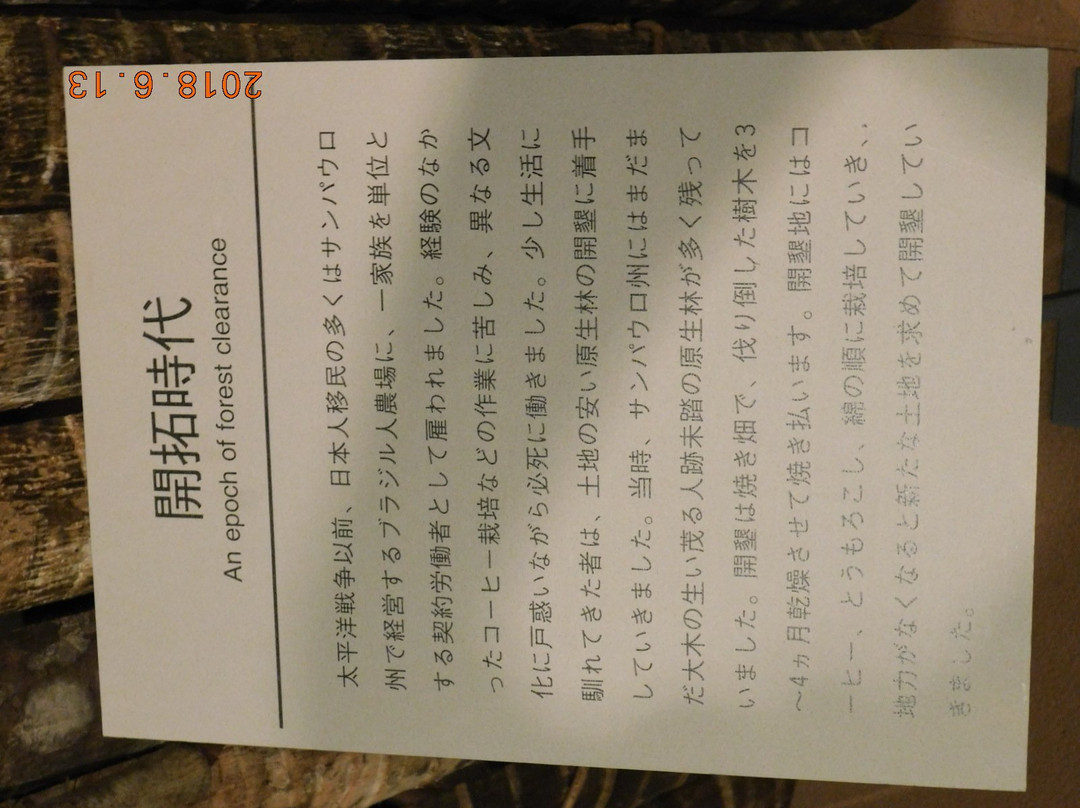 2018.6.13
開拓時代
An epoch of forest clearance
太平洋戦争以前、日本人移民の多くはサンパウロ
州で経営するブラジル人農場に、一家族を単位と
する契約労働者として雇われました。経験のなか
ったコーヒー栽培などの作業に苦しみ、異なる文
化に戸惑いながら必死に働きました。少し生活に
馴れてきた者は、土地の安い原生林の開墾に着手
していきました。当時、サンパウロ州にはまだま
だ大木の生い茂る人跡未踏の原生林が多く残って
いました。開墾は焼き畑で、伐り倒した樹木を3
～4ヵ月乾燥させて焼き払います。開墾地にはコ
ーヒー、とうもろこし、綿の順に栽培していき、、
地力がなくなると新たな土地を求めて開墾してい
きました。